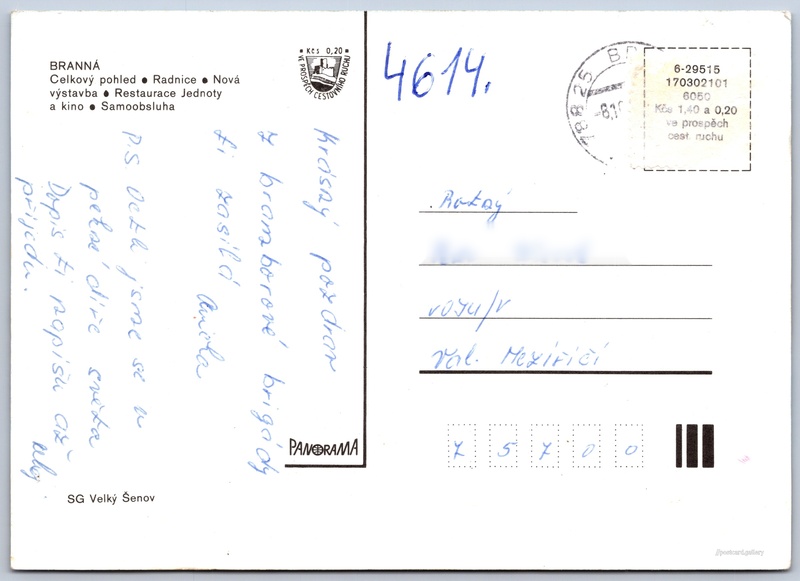 BRANNÁ
Celkový pohled ● Radnice ● Nová
výstavba ● Restaurace Jednoty
a kino ● Samoobsluha
● Kčs 0,20 ●
VE PROSPĚCH CESTOVNÍHO RUCHU
4614.
788 25
6-29515
170302101
6050
Kčs 1,40 a 0,20
ve prospěch
cest. ruchu
Krásný pozdrav
z bramborové brigády
ti zasílá
P.S. Octli jsme se v
pekné díře světa
Dopis ti napíšu až
přijedu.
Ahoj
Rotný
VOJU/V
Val. Meziříčí
7 5 7 0 0
PANORAMA
SG Velký Šenov
//postcard.gallery